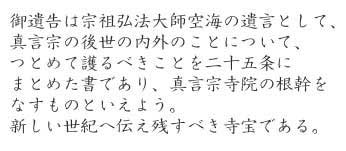 御遺告は宗祖弘法大師空海の遺言として、
真言宗の後世の内外のことについて、
つとめて護るべきことを二十五条に
まとめた書であり、真言宗寺院の根幹を
なすものといえよう。
新しい世紀へ伝え残すべき寺宝である。